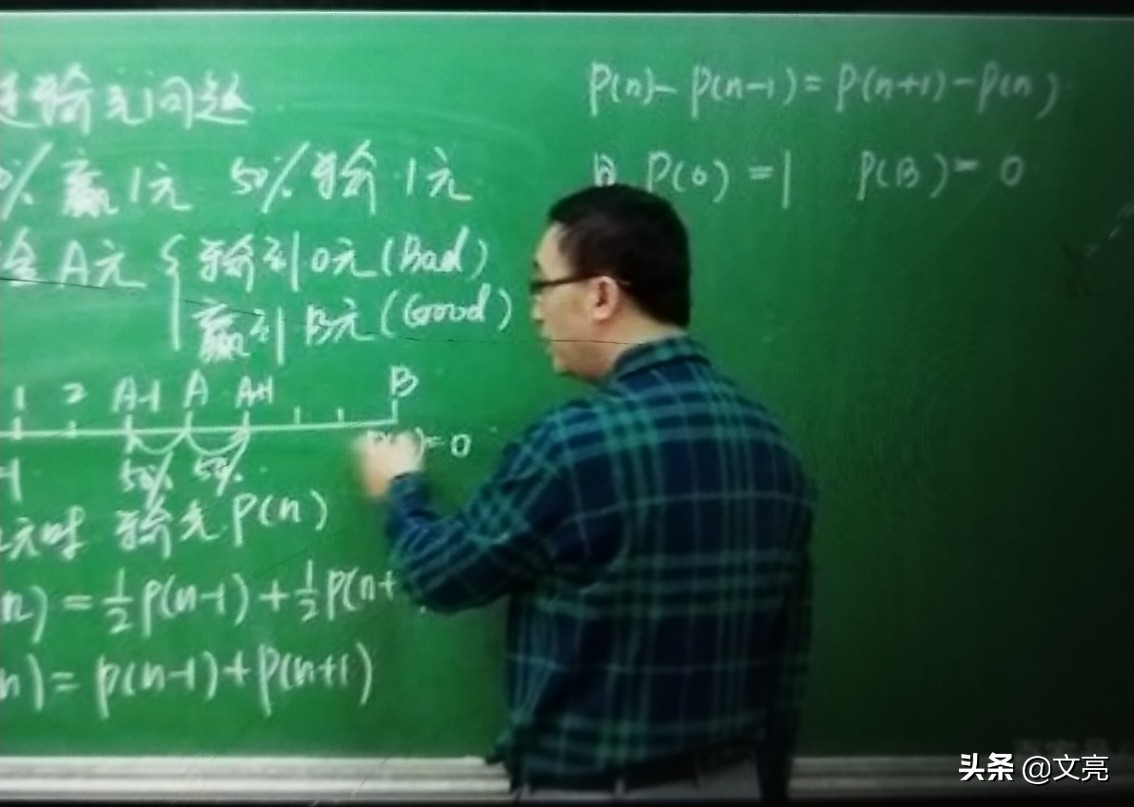 输光问题
% 赢1元 50% 输1元
A元 { 输到0元(Bad)
赢到B元(Good)
1 2 A-1 A A+1 B
=0
50% 50%
元时 输光P(n)
n) = 1/2 P(n-1) + 1/2 P(n+
n) = P(n-1)+P(n+1)
P(n)-P(n-1)=P(n+1)-P(n)
P(0)=1 P(B)=0
头条 @文亮